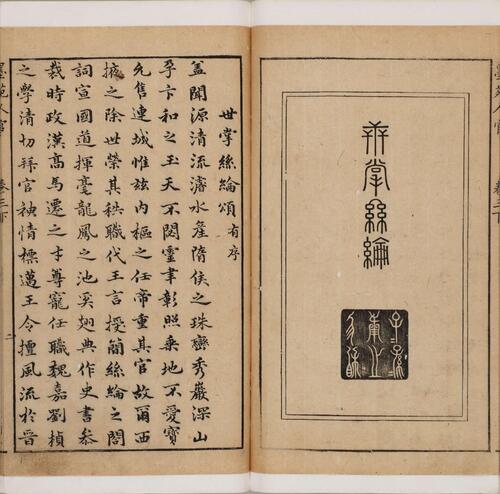 世掌絲綸
世掌絲綸頌有序
蓋聞源清流濬水產隋侯之珠巒秀巖深山
孕卞和之玉天不閟靈聿彰照乘地不愛寶
允售連城惟玆內樞之任帝重其官故爾西
掖之除世榮其秩職代王言授簡絲綸之閣
詞宣國道揮毫龍鳳之池奚翅典作史書叅
裁時政漢高馬遷之才尊寵任職魏嘉劉楨
之學清切拜官神情標邁王令擅風流於晉
墨苑人官 卷三下 二